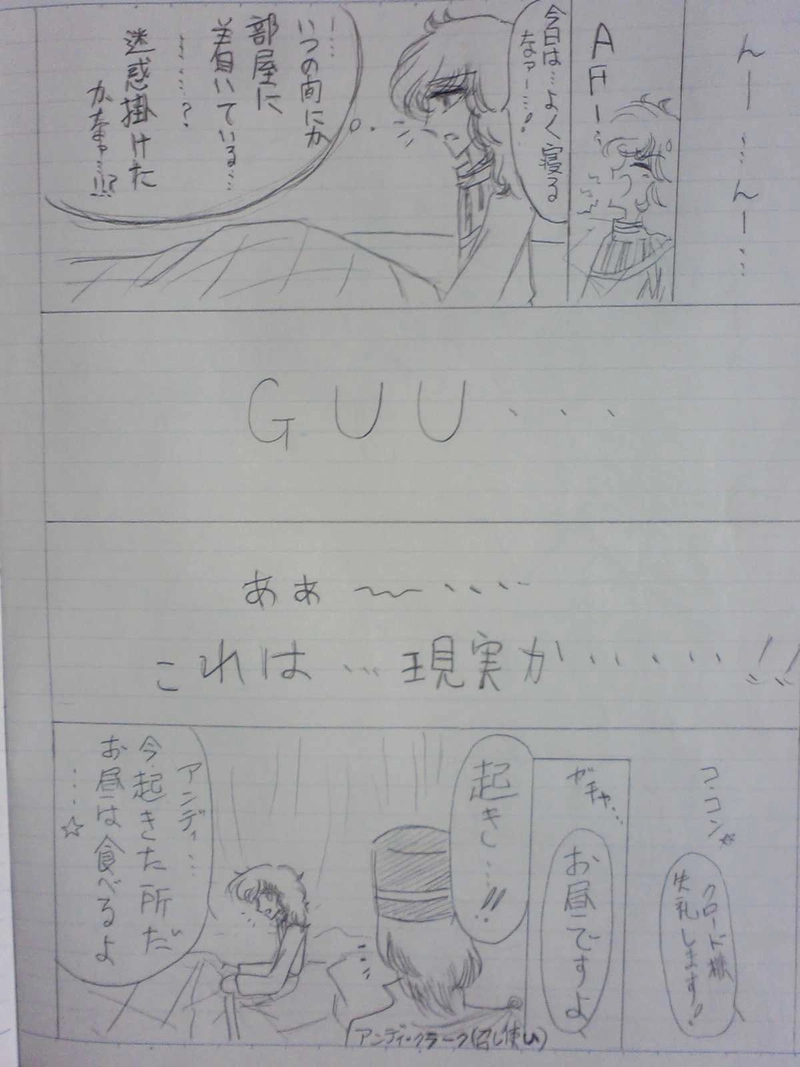 んー…んー…
AFー…
今日は…よく寝る
なァー…!
!…
いつの間にか
部屋に
着いている…
……?
迷惑掛けた
かなァ…!!?
GUU...
あぁ〜....
これは…現実か.....!!
コ・コン☆
クロード様
失礼します!
ガチャ…
お昼ですよ
起き…!!
アンディ…
今起きた所だ
お昼は食べるよ
….☆
アンディ・クラーク(召し使い)